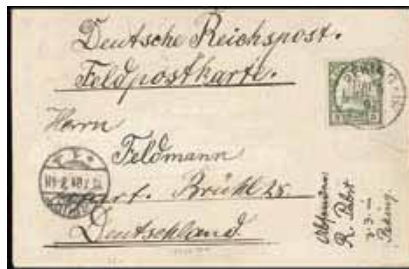 Deutsche Reichspost.
Feldpostkarte.
Herrn
Feldmann
Brühl 25.
Deutschland.
Absender:
R. Pabst
Peking.